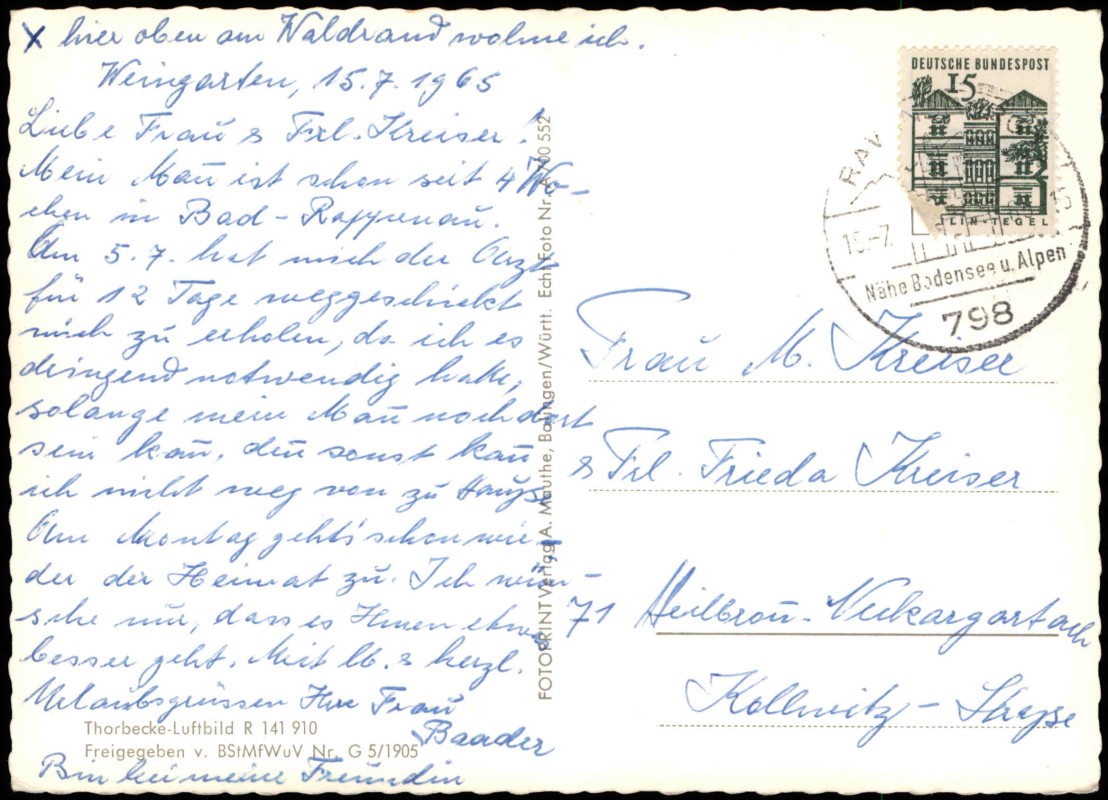 X hier oben am Waldrand wohne ich.
Weingarten, 15.7.1965
Liebe Frau & Frl. Kreiser!
Mein Man̄ ist schon seit 4 Wo-
chen in Bad-Rappenau.
Am 5.7. hat mich der Arzt
für 12 Tage weggeschickt
mich zu erholen, da ich es
dringend notwendig habe,
solange mein Man̄ noch dort
sein kan̄, den̄ sonst kan̄
ich nicht weg von zu Hause
Am Montag geht's schon wie-
der der Heimat zu. Ich wün-
sche nur, dass es Ihnen etwas
besser geht. Mit lb. & herzl.
Urlaubsgrüssen Ihre Frau
Baader
Bin bei meine Freundin
Thorbecke-Luftbild R 141 910
Freigegeben v. BStMfWuV Nr. G 5/1905
FOTOPRINT Verlag A. Mauthe, Balingen/Württ. Echt Foto Nr. 552
DEUTSCHE BUNDESPOST
15
LIN-TEGEL
RAV
15-7
Nähe Bodensee u. Alpen
798
Frau M. Kreiser
& Frl. Frieda Kreiser
71 Heilbron̄-Neckargartach
Kollwitz-Strasse